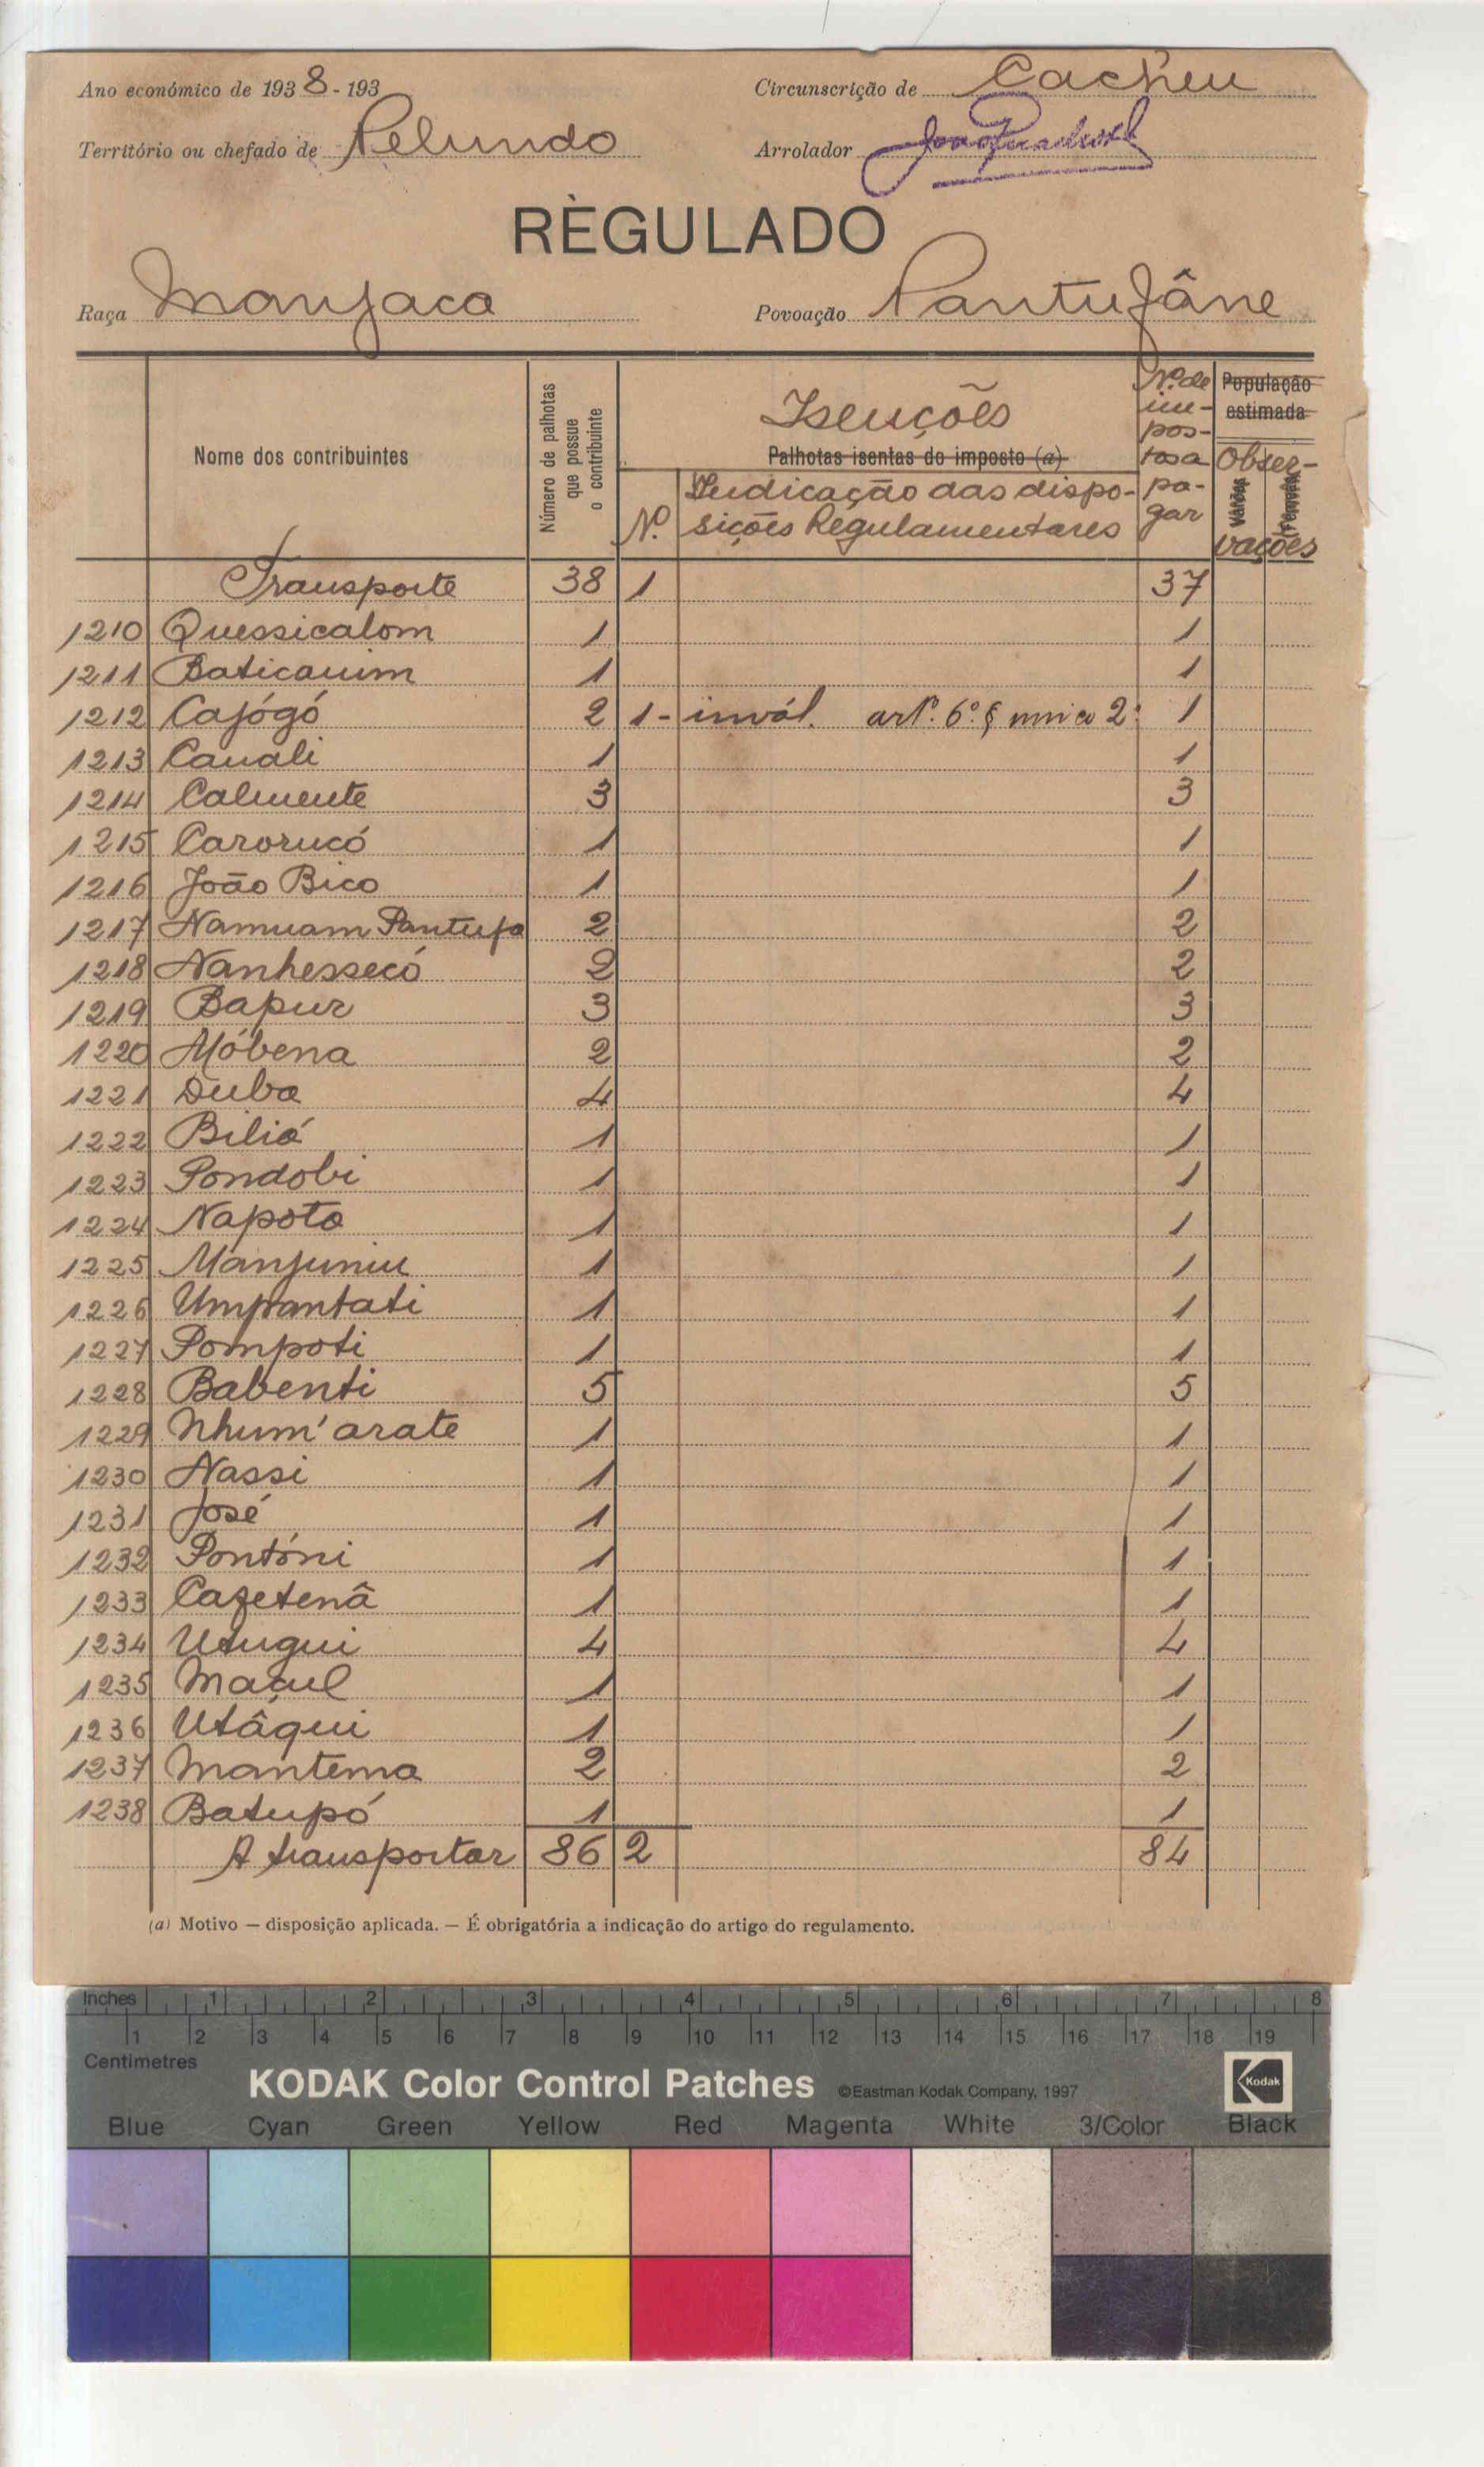 Ano económico de 1938-193 Circunscrição de Cacheu
Território ou chefado de Pelundo Arrolador
RÈGULADO
Raça Manjaca Povoação Pantufâne
Nome dos contribuintes
Número de palhotas
que possue
o contribuinte
Isenções
Palhotas isentas do imposto (a)
Nº.
Indicação das dispo-
sições Regulamentares
Nº de
im-
pos-
tos a
pa-
gar
População
estimada
Obser-
Varões
Fêmeas
vações
Transporte 38 1 37
1210 Quessicalom 1 1
1211 Baticauim 1 1
1212 Cajógó 2 1 - invál. artº. 6º. § unico 2º 1
1213 Canali 1 1
1214 Calmente 3 3
1215 Carorucó 1 1
1216 João Bico 1 1
1217 Namuam Pantufa 2 2
1218 Nanhessecó 2 2
1219 Bapur 3 3
1220 Móbena 2 2
1221 Duba 4 4
1222 Bilió 1 1
1223 Pondobi 1 1
1224 Napoto 1 1
1225 Manjuniu 1 1
1226 Umpantati 1 1
1227 Pompoti 1 1
1228 Babenti 5 5
1229 Nhum'arate 1 1
1230 Nassi 1 1
1231 José 1 1
1232 Pontóni 1 1
1233 Cazetenâ 1 1
1234 Utugui 4 4
1235 Maçul 1 1
1236 Utâqui 1 1
1237 Mantema 2 2
1238 Batupó 1 1
A transportar 86 2 84
(a) Motivo — disposição aplicada. — É obrigatória a indicação do artigo do regulamento.
Inches 1 2 3 4 5 6 7 8
1 2 3 4 5 6 7 8 9 10 11 12 13 14 15 16 17 18 19
Centimetres
KODAK Color Control Patches ©Eastman Kodak Company, 1997 Kodak
Blue Cyan Green Yellow Red Magenta White 3/Color Black